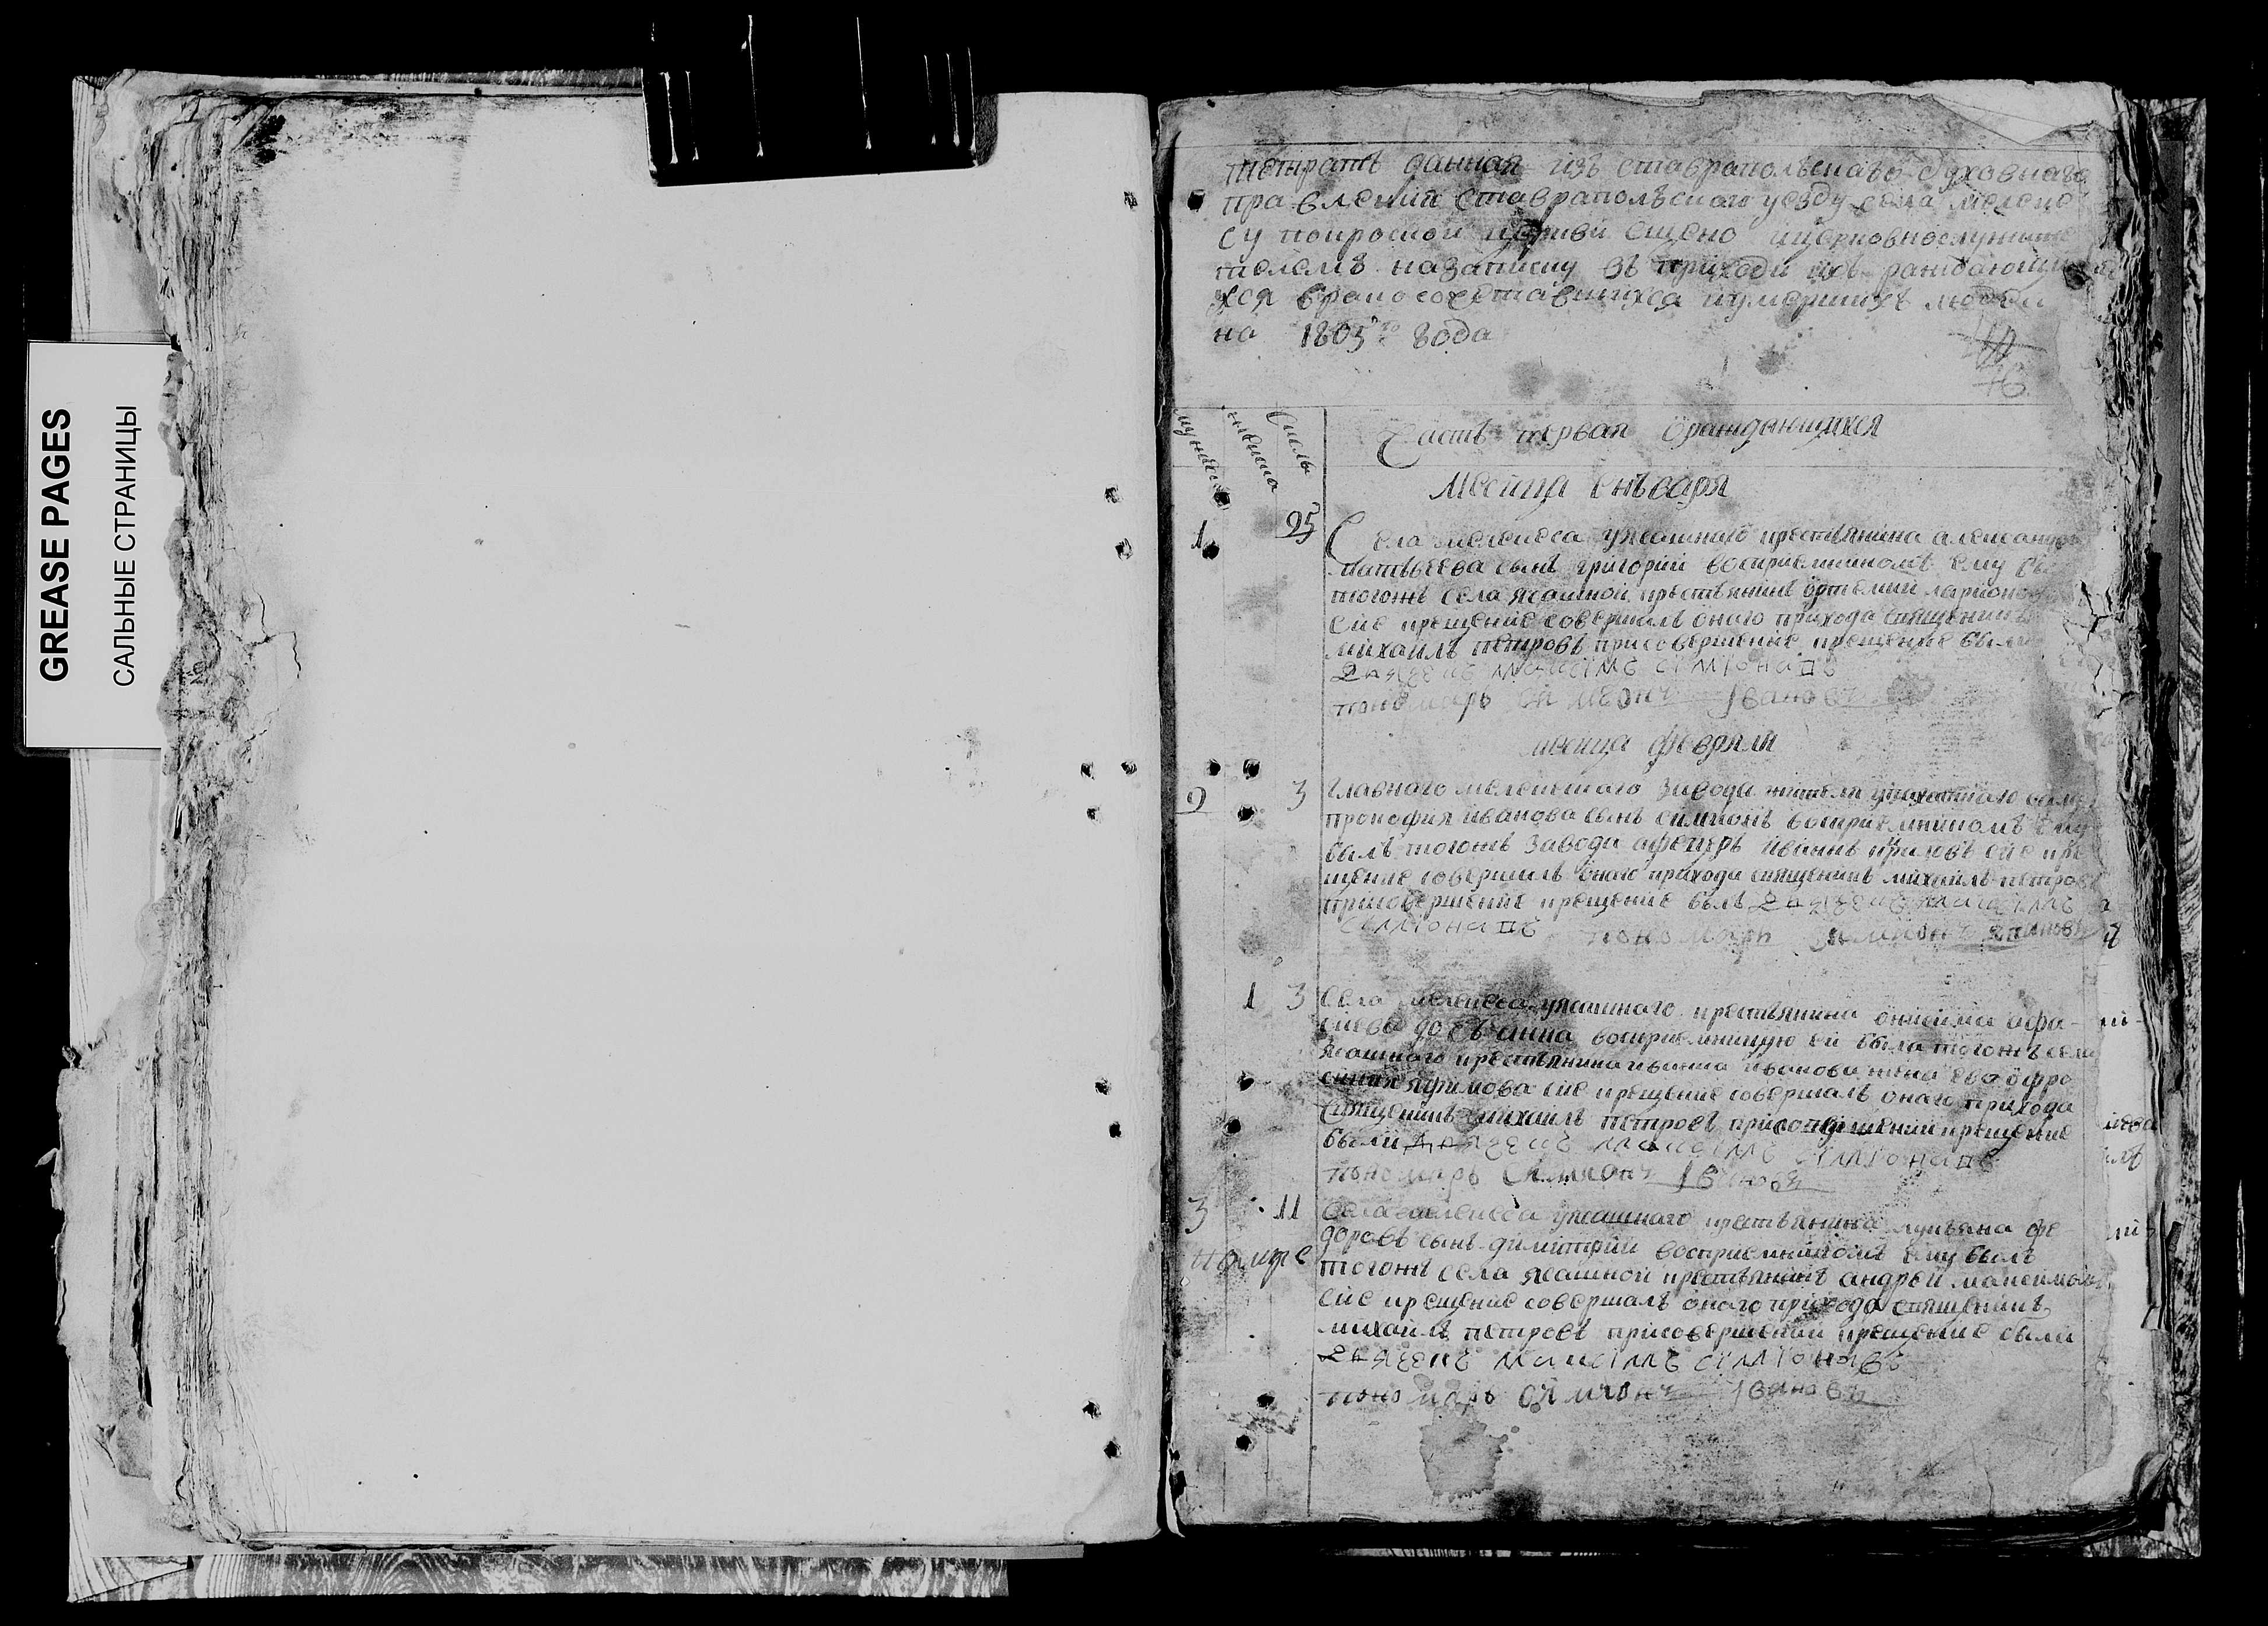 GREASE PAGES
САЛЬНЫЕ СТРАНИЦЫ
тетрать данная изъ ставрапольскагѡ духовнаго
правления ставрапольскаго уезду села мелеке
су покроской церкви свщено ицерковнослужите
телемъ назаписку въ приходи ихъ раждающи
хся бракосочетавшихся иумершихъ людей
на 1805го года
46
мужеска
женска
Часть первая ораждающихся
месяца енъваря
1 25 Села мелекеса уясашнаго крестьянина александра
матвъева сынъ григорий восприемникомъ ему бы
тогожъ села ясашной крестьянинъ ортемий ларионо
сие крещение совершалъ онаго прихода священникъ
михаилъ петровъ присовершение крещение были
дьячекъ максімъ сіміонапъ
пономарь симеонъ Iвановъ
месяца февраля
2 3 главнаго мелекескаго завода жителя
прокофия иванова сынъ симионъ восприемникомъ ему
былъ тогожъ завода афецеръ иваннъ сие кре
щение совершилъ онаго прихода священникъ михаилъ петровъ
присовершение крещение былъ дьячекъ максімъ
сіміонапъ пономарь симионъ Iвановъ
1 3 Села мелекеса уясашнаго крестьянина онисима афа-
сиева дочъ анна восприемницую ей была тогожъ села
ясашнаго крестьянина иванна иванова жена ево офро
синия яфимова сие крещение совершалъ онаго прихода
священникъ михаилъ петровъ присовершении крещение
были дьячекъ максімъ сіміонапъ
пономарь симионъ Iвановъ
3 11 Села мелекеса уясашнаго крестьянина лукьяна фе
доровъ сынъ димитрий восприемникомъ ему былъ
тогожъ села ясашной крестьянинъ андрей максимовъ
сие крещение совершалъ онаго прихода священникъ
михаилъ петровъ присовершении крещение были
дьячекъ максімъ сіміонавъ
пономарь симионъ Iвановъ